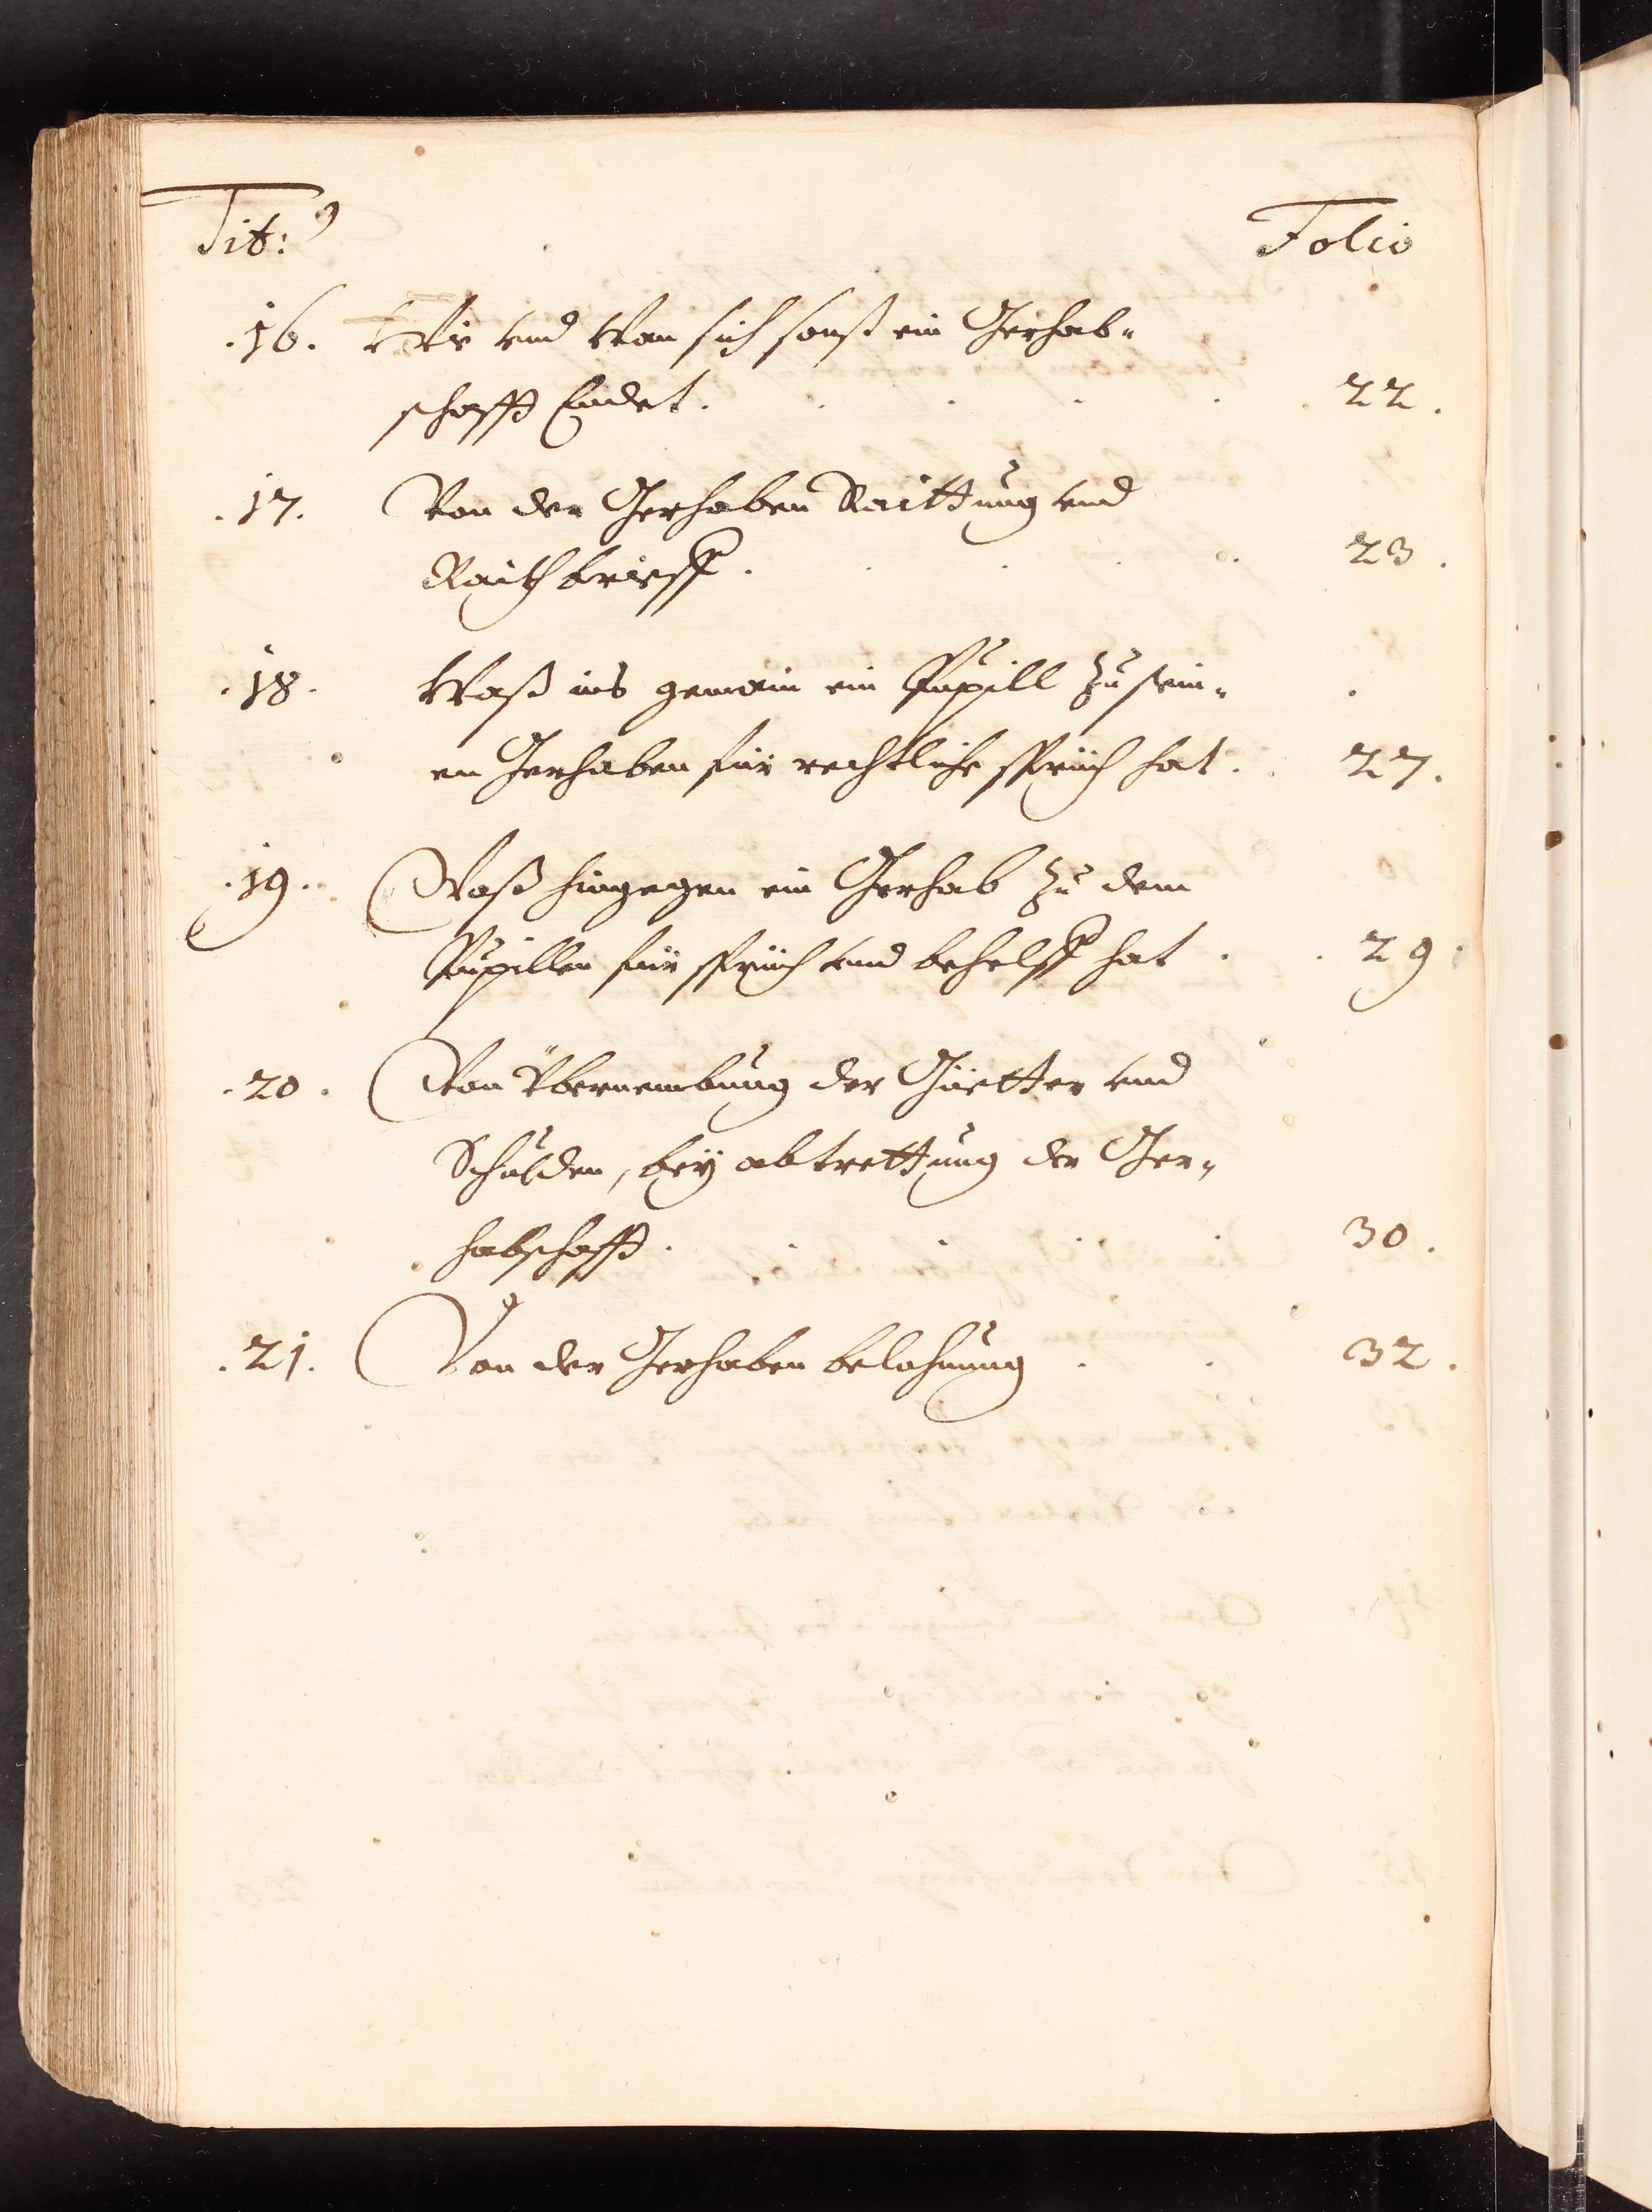 Tit:9 Folio
.16. Wie und wan sich sonst ein Gerhab-
schafft Endet. . . . . . 22.
.17. Von der Gerhaben Raittung und
Raithbrieff. . . . . 23.
.18. Waß ins gemain ein Pupill zu sein-
en Gerhaben für rechtliche sprüch hat. . 27.
.19. Waß hingegen ein Gerhab zu dem
Pupillen für sprüch und behelff hat . . 29
.20. Von Übernembung der Güetter und
Schulden, bey abtrettung der Ger-
habschafft. . . . 30.
.21. Von der Gerhaben belohnung . . 32.